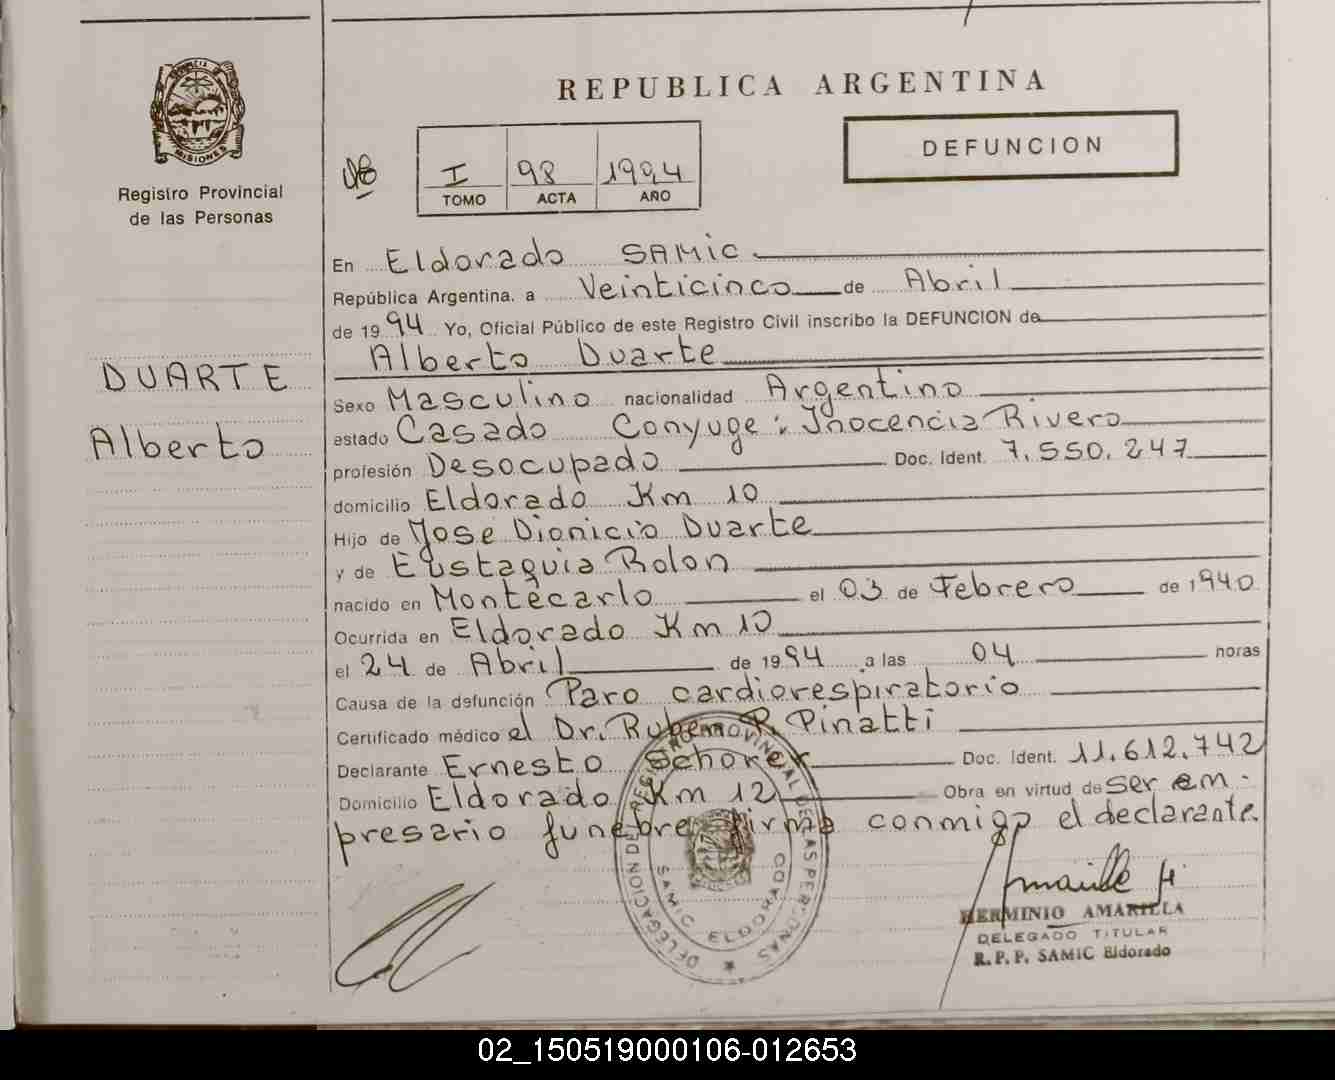 PROVINCIA DE
MISIONES
Registro Provincial
de las Personas
DUARTE
Alberto
REPUBLICA ARGENTINA
DEFUNCION
I 98 1994
TOMO ACTA AÑO
En Eldorado SAMIC
República Argentina, a Veinticinco de Abril
de 1994 Yo, Oficial Público de este Registro Civil inscribo la DEFUNCION de
Alberto Duarte
Sexo Masculino nacionalidad Argentino
estado Casado Conyuge: Inocencia Rivero
profesión Desocupado Doc. Ident. 7.550.247
domicilio Eldorado Km 10
Hijo de José Dionicio Duarte
y de Eustaquia Rolon
nacido en Montecarlo el 03 de Febrero de 1940
Ocurrida en Eldorado Km 10
el 24 de Abril de 1994 a las 04 horas
Causa de la defunción Paro cardiorespiratorio
Certificado médico el Dr. Ruben R. Pinatti
Declarante Ernesto Schorer Doc. Ident. 11.612.742
Domicilio Eldorado Km 12 Obra en virtud de ser em-
presario funebre firma conmigo el declarante.
DELEGACION DEL REGISTRO PROVINCIAL DE LAS PERSONAS
SAMIC ELDORADO
HERMINIO AMARILLA
DELEGADO TITULAR
R.P.P. SAMIC Eldorado
02_150519000106-012653